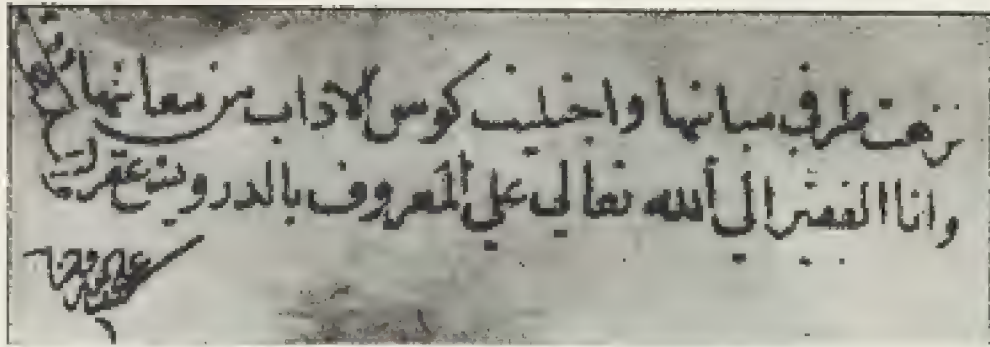 نزهت طرفي مبانيها واجتليت كوس الاداب من معانيها
وانا الفقير الى الله تعالى علي المعروف بالدرويش